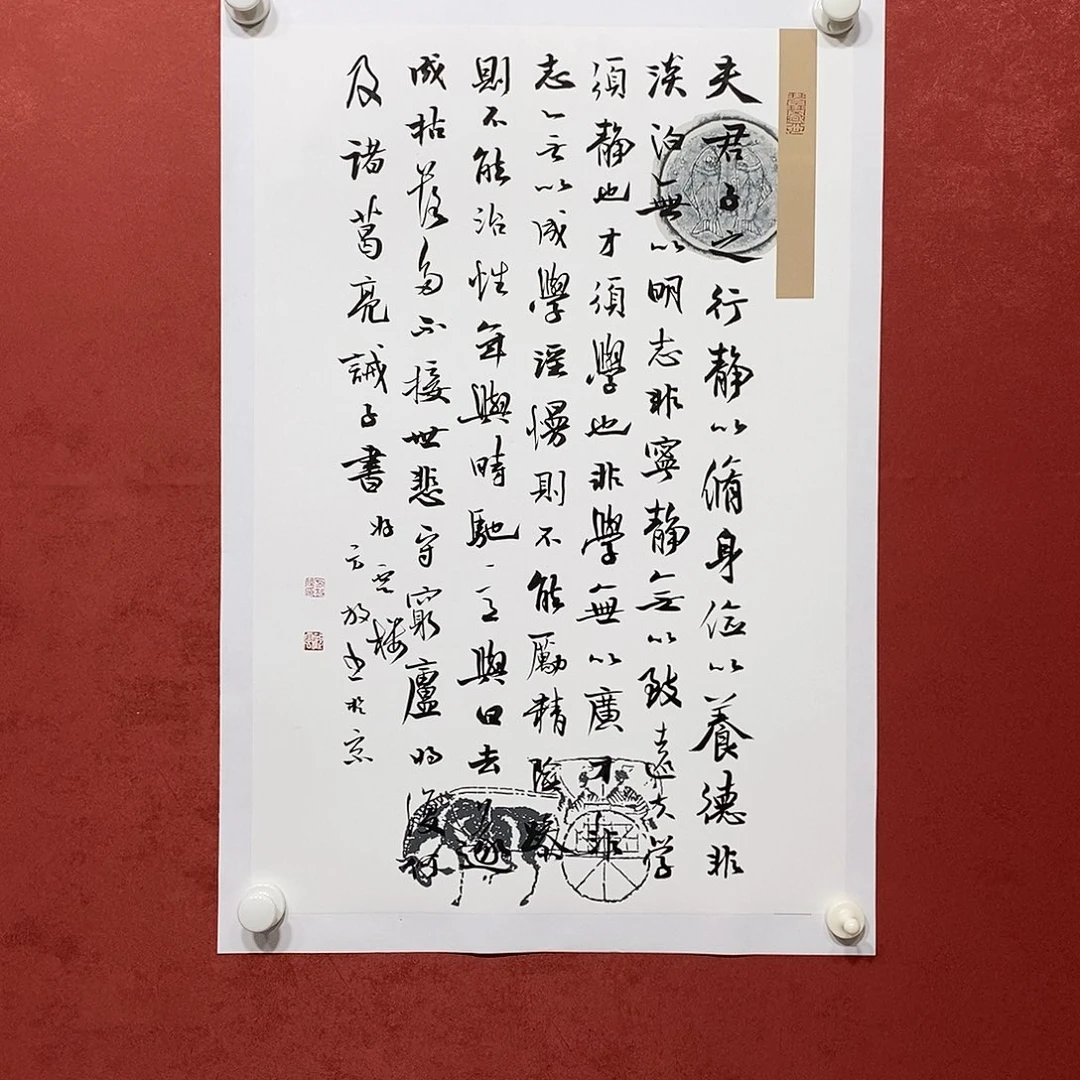 夫君子之行静以脩身俭以養德非
淡泊無以明志非寧静无以致遠夫学
須静也才须學也非學無以廣才非
志无以成學淫慢則不能勵精險躁
則不能治性年與時馳意與日去遂
成枯落多不接世悲守窮廬将復何
及诸葛亮誡子書
书於京